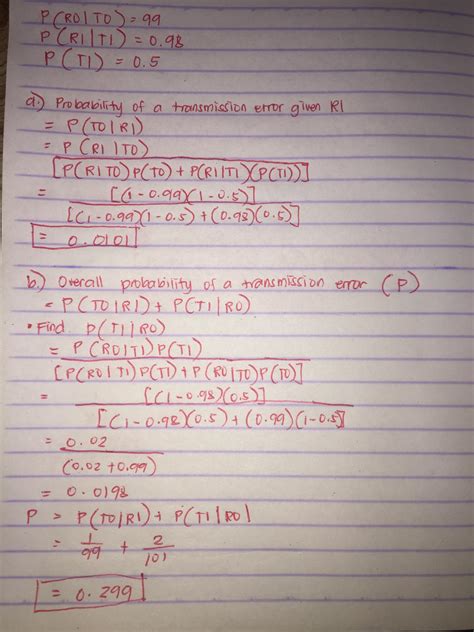 P(R0|T0) = 99
P(R1|T1) = 0.98
P(T1) = 0.5
a.) Probability of a transmission error given R1
= P(T0|R1)
= P(R1|T0)
[P(R1T0)P(T0) + P(R1|T1)(P(T1))]
= [(1-0.99)(1-0.5)]
[(1-0.99)(1-0.5) + (0.98)(0.5)]
= 0.0101
b.) Overall probability of a transmission error (P)
= P(T0|R1) + P(T1|R0)
• Find P(T1|R0)
= P(R0|T1)P(T1)
[P(R0|T1)P(T1) + P(R0|T0)P(T0)]
= [(1-0.98)(0.5)]
[(1-0.98)(0.5) + (0.99)(1-0.5)]
= 0.02
(0.02 + 0.99)
= 0.0198
P = P(T0|R1) + P(T1|R0|
= 1/99 + 2/101
= 0.299